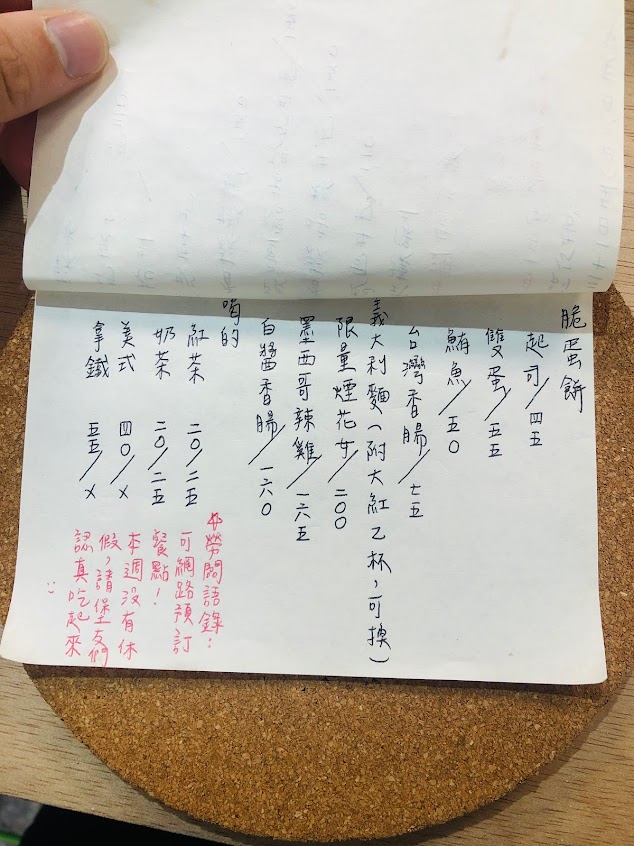 脆蛋餅
起司/四五
雙蛋/五五
鮪魚/五0
台灣香腸/七五
義大利麵(附大紅乙杯,可換)
限量煙花女/二00
墨西哥辣雞/一六五
白醬香腸/一六0
喝的
紅茶 二0/二五
奶茶 二0/二五
美式 四0/x
拿鐵 五五/x
勞闆語錄:
可網路預訂
餐點!
本週沒有休
假,請堡友們
認真吃起來